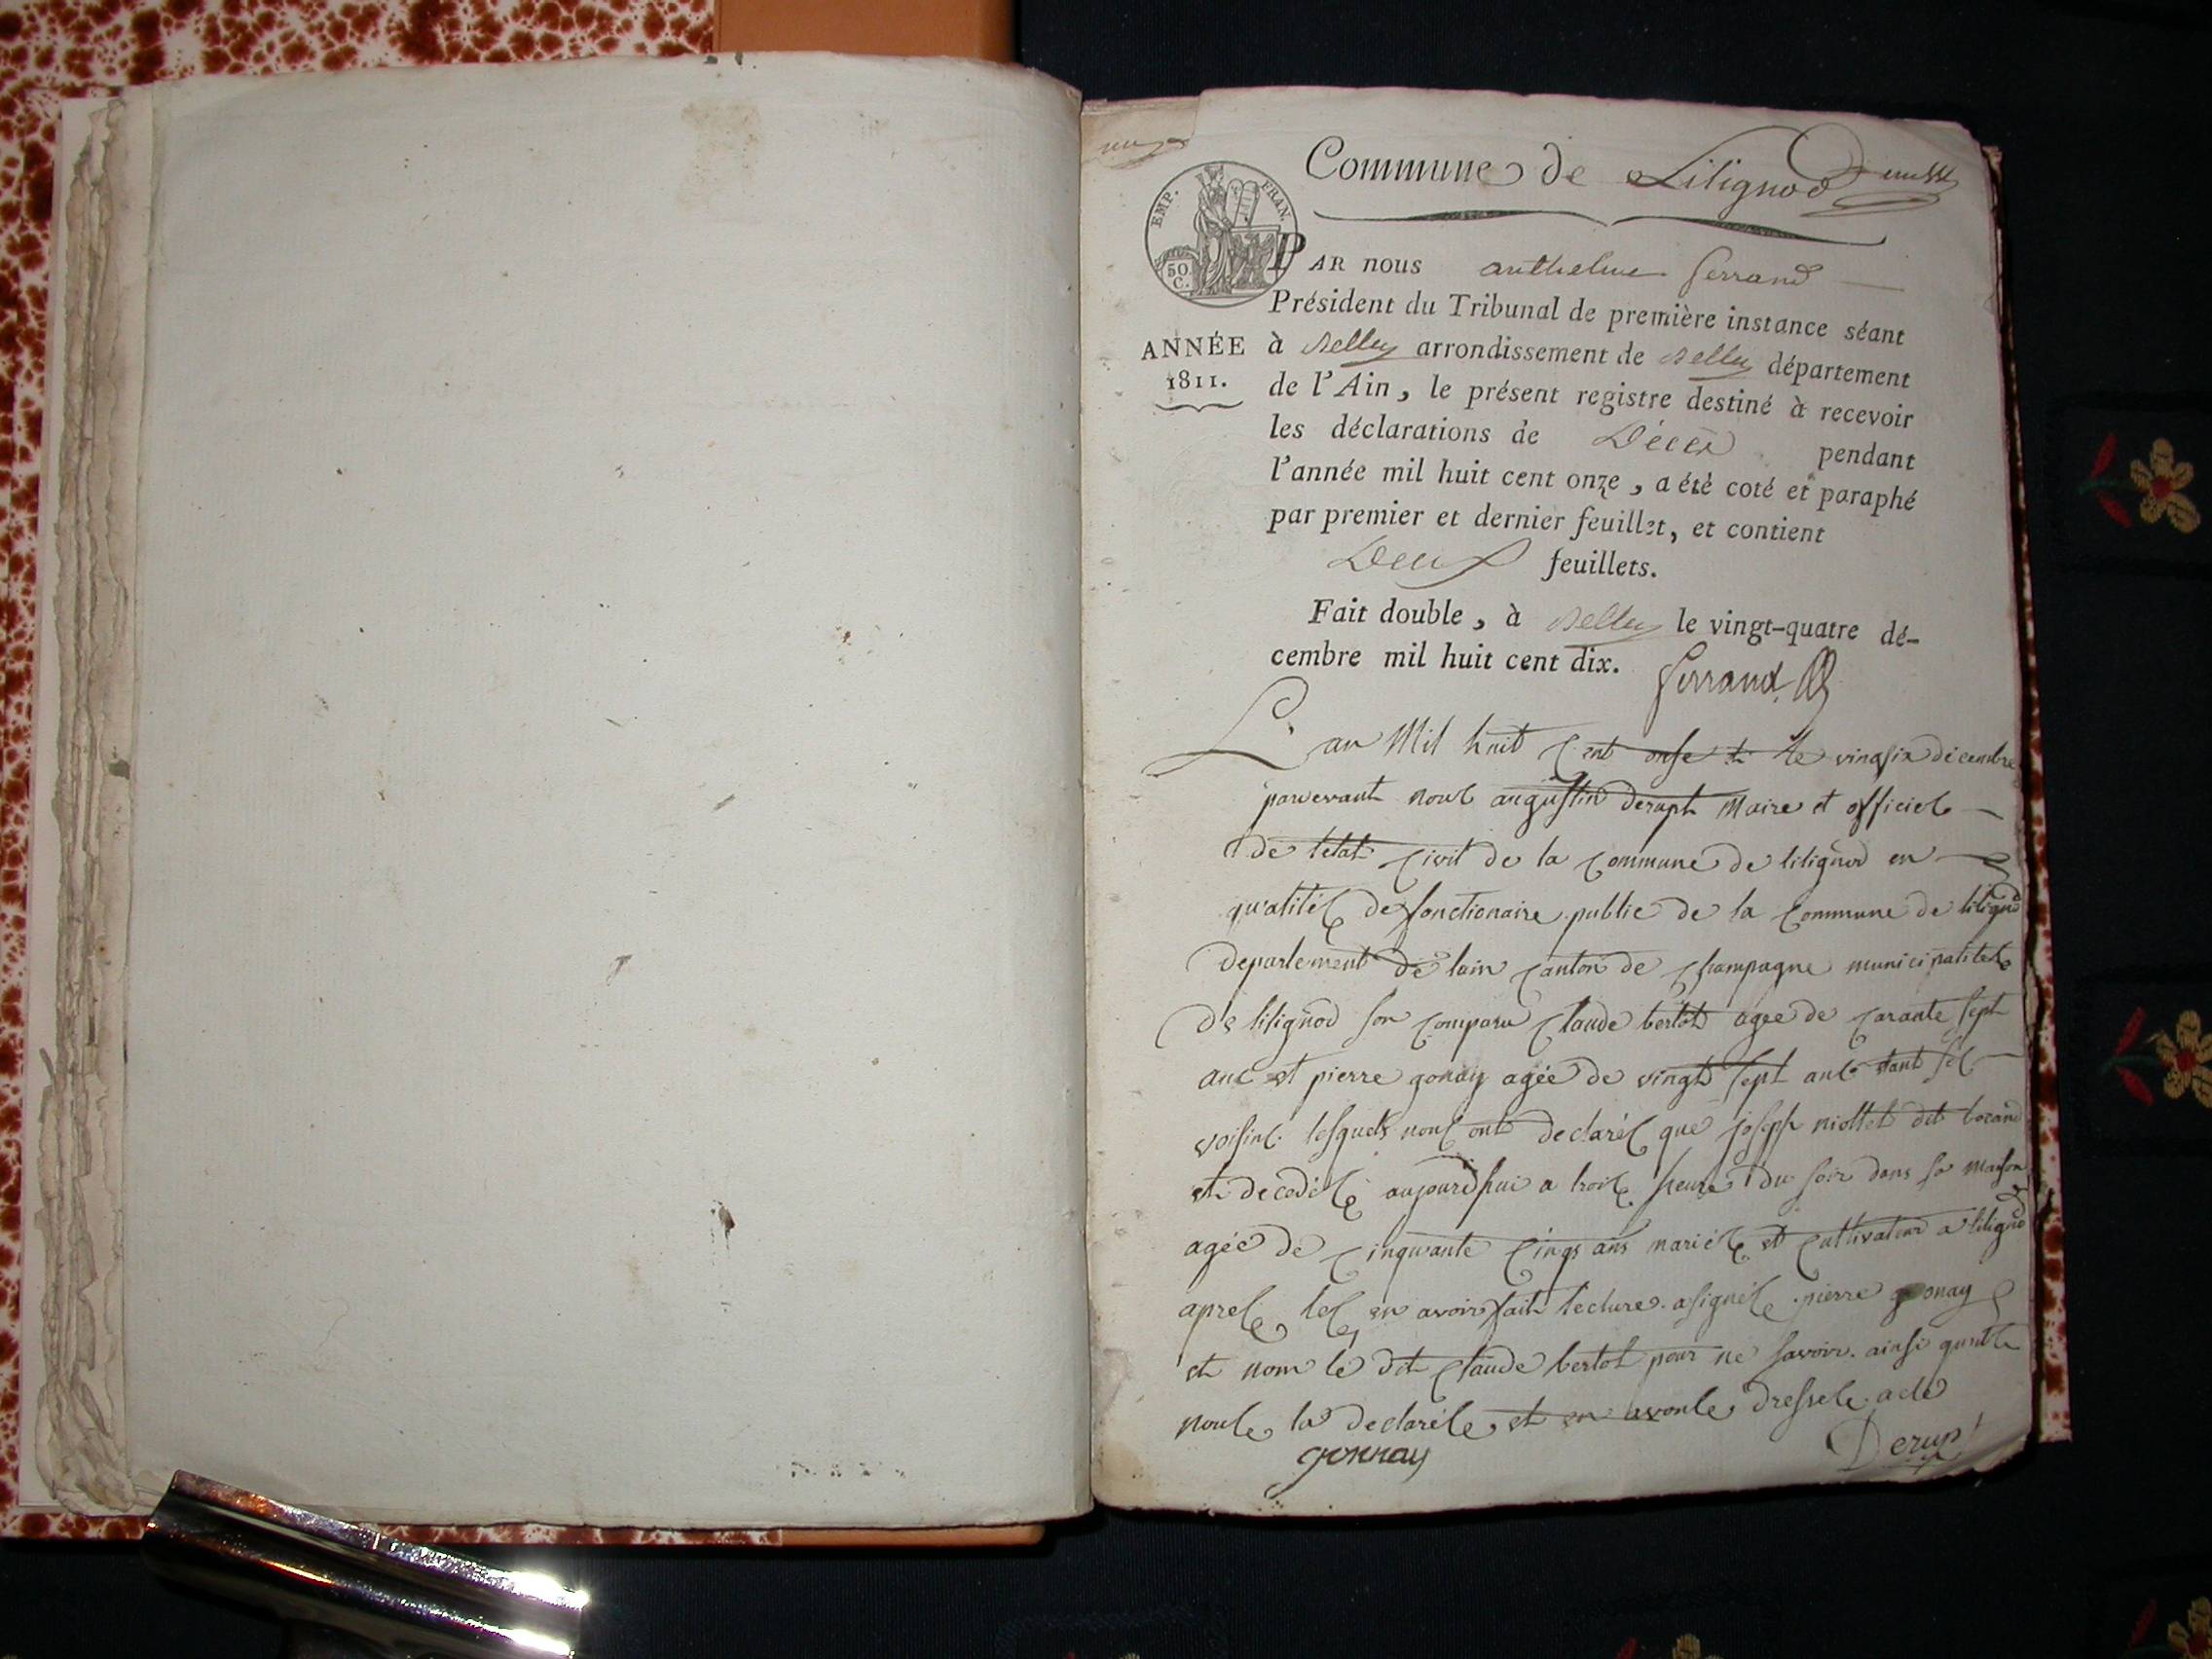 Commune de Lilignod
EMP. FRAN.
50 C.
PAR nous anthelme ferrand
Président du Tribunal de première instance séant
ANNÉE
1811.
à Belley arrondissement de Belley département
de l'Ain, le présent registre destiné à recevoir
les déclarations de Décès pendant
l'année mil huit cent onze, a été coté et paraphé
par premier et dernier feuillet, et contient
Deux feuillets.
Fait double, à Belley le vingt-quatre dé-
cembre mil huit cent dix. ferrand
L'an Mil huit Cent onse le vingsix decembre
parvevant nous augustin derupt Maire et officies
de letat Civil de la Commune de lilignod en
qualités de fonctionaire public de la Commune de lilignod
departement de lain Canton de Champagne municipalitée
de lilignod son Comparu Claude bertet agee de Carante sept
ans et pierre gonay agée de vingt sept ans etant ses
voisins lesquels nous ont declarés que joseph miollet dit
et decedés aujourdhui a trois heure du soir dans sa maison
agée de Cinquante Cinqs ans mariés et Cultivateur a lilignod
apres les en avoir fait lecture a signés pierre gonay
et nom le dit Claude bertet pour ne savoir ainsi quil
nous la declarés et en avons dressés acte
gonnay Derupt